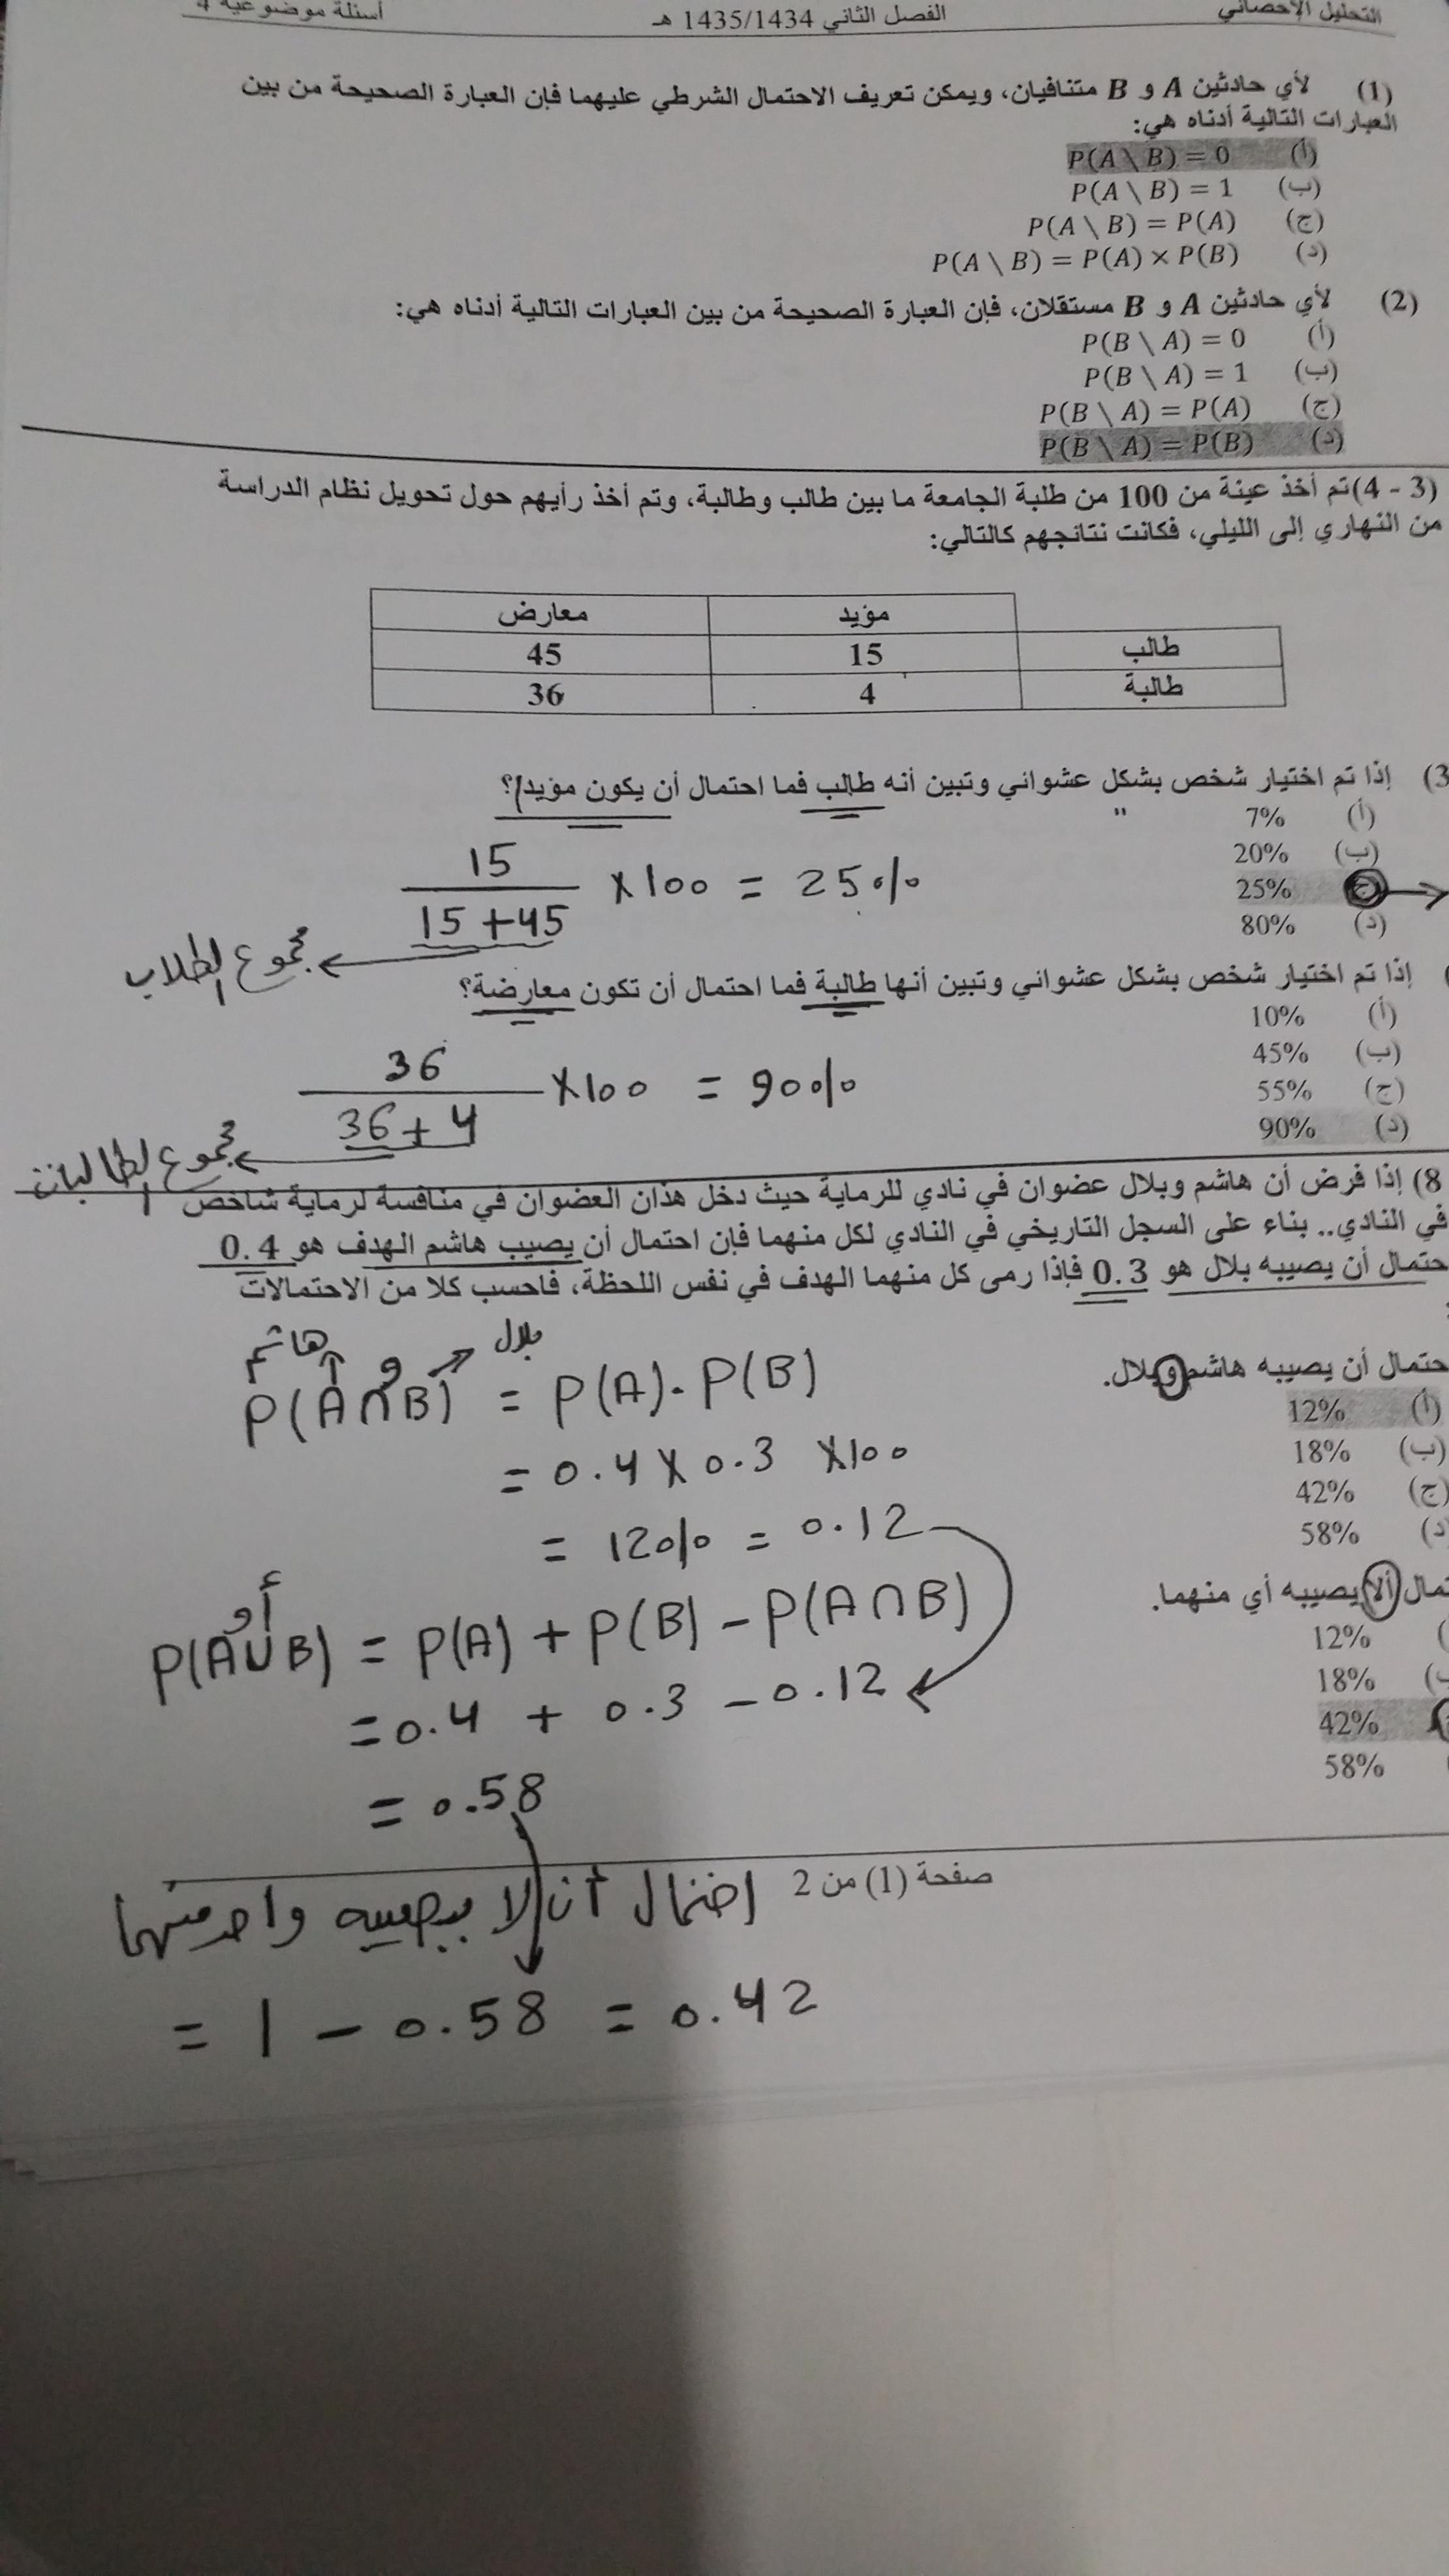 التحليل الإحصائي الفصل الثاني 1435/1434 هـ أسئلة موضوعية 4
(1) لأي حادثين A و B متنافيان، ويمكن تعريف الاحتمال الشرطي عليهما فإن العبارة الصحيحة من بين
العبارات التالية أدناه هي:
(أ) P(A \ B) = 0
(ب) P(A \ B) = 1
(ج) P(A \ B) = P(A)
(د) P(A \ B) = P(A) × P(B)
(2) لأي حادثين A و B مستقلان، فإن العبارة الصحيحة من بين العبارات التالية أدناه هي:
(أ) P(B \ A) = 0
(ب) P(B \ A) = 1
(ج) P(B \ A) = P(A)
(د) P(B \ A) = P(B)
(3 - 4) تم أخذ عينة من 100 من طلبة الجامعة ما بين طالب وطالبة، وتم أخذ رأيهم حول تحويل نظام الدراسة
من النهاري إلى الليلي، فكانت نتائجهم كالتالي:
مؤيد معارض
طالب 15 45
طالبة 4 36
3) إذا تم اختيار شخص بشكل عشوائي وتبين أنه طالب فما احتمال أن يكون مؤيدا؟
(أ) 7%
(ب) 20%
(ج) 25%
(د) 80%
15
15 + 45
x 100 = 25%
مجموع الطلاب
إذا تم اختيار شخص بشكل عشوائي وتبين أنها طالبة فما احتمال أن تكون معارضة؟
(أ) 10%
(ب) 45%
(ج) 55%
(د) 90%
36
36 + 4
x 100 = 90%
مجموع الطالبات
8) إذا فرض أن هاشم وبلال عضوان في نادي للرماية حيث دخل هذان العضوان في منافسة لرماية شاخص
في النادي.. بناء على السجل التاريخي في النادي لكل منهما فإن احتمال أن يصيب هاشم الهدف هو 0.4
حتمال أن يصيبه بلال هو 0.3 فإذا رمى كل منهما الهدف في نفس اللحظة، فاحسب كلا من الاحتمالات
حتمال أن يصيبه هاشم وبلال.
(أ) 12%
(ب) 18%
(ج) 42%
د) 58%
هاشم و بلال
P(A∩B) = P(A). P(B)
= 0.4 x 0.3 x 100
= 12% = 0.12
تمال ألا يصيبه أي منهما.
12%
18%
42%
58%
أو
P(A∪B) = P(A) + P(B) - P(A∩B)
= 0.4 + 0.3 - 0.12
= 0.58
صفحة (1) من 2
احتمال أن لا يصيبه واحد منهما
= 1 - 0.58 = 0.42